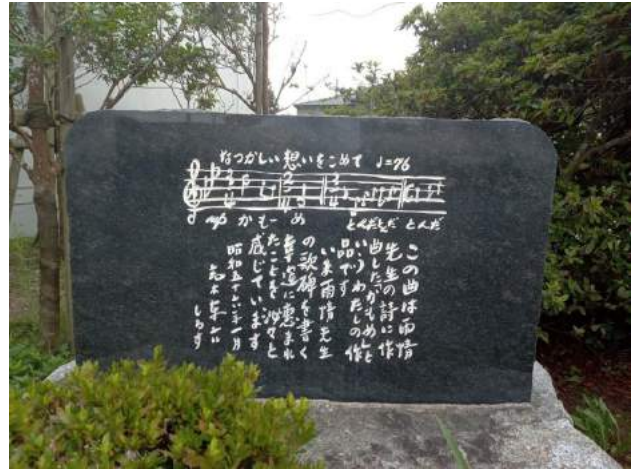 なつかしい想いをこめて ♩=76
mp かもーめ とんだとんだ とんだ
この曲は雨情
先生の詩に作
曲した「かもめ」と
いうわたしの作
品です
いま雨情先生
の歌碑を書く
幸運に恵まれ
たことを沁々と
感じています
昭和五十六年十一月
しるす